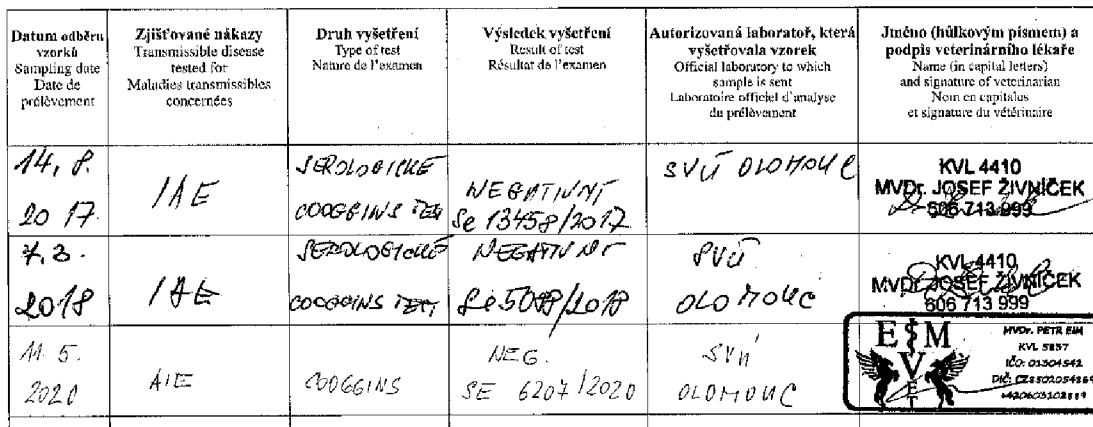 Datum odběru vzorků
Sampling date
Date de prélèvement
Zjišťované nákazy
Transmissible disease tested for
Maladies transmissibles concernées
Druh vyšetření
Type of test
Nature de l'examen
Výsledek vyšetření
Result of test
Résultat de l'examen
Autorizovaná laboratoř, která vyšetřovala vzorek
Official laboratory to which sample is sent
Laboratoire officiel d'analyse du prélèvement
Jméno (hůlkovým písmem) a podpis veterinárního lékaře
Name (in capital letters) and signature of veterinarian
Nom en capitales et signature du vétérinaire
14. 8.
2017
IAE
SEROLOGICKÉ
COOGGINS TEST
NEGATIVNÍ
Se 13458/2017
SVÚ OLOMOUC
KVL 4410
MVDr. JOSEF ŽIVNÍČEK
606 713 999
7. 3.
2018
IAE
SEROLOGICKÉ
COOGGINS TEST
NEGATIVNÍ
Se 5088/2018
SVÚ
OLOMOUC
KVL 4410
MVDr. JOSEF ŽIVNÍČEK
606 713 999
11. 5.
2020
AIE
COOGGINS
NEG.
SE 6207/2020
SVÚ
OLOMOUC
E M
V
E T
MVDr. PETR EIM
KVL 5837
IČO: 01304542
DIČ: CZ8502054869